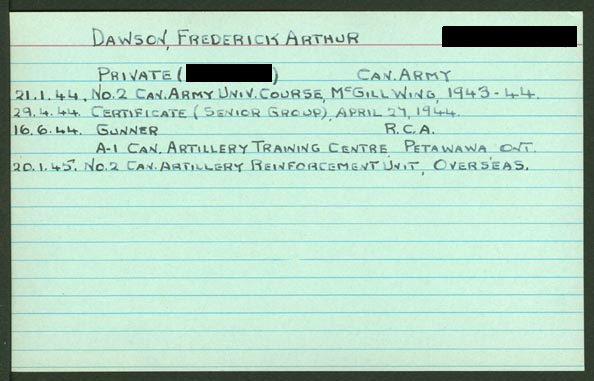 DAWSON, FREDERICK ARTHUR
PRIVATE ( ) CAN. ARMY
21.1.44. No. 2 CAN. ARMY UNIV. COURSE, McGILL WING, 1943-44.
29.4.44. CERTIFICATE (SENIOR GROUP), APRIL 27, 1944.
16.6.44. GUNNER R.C.A.
A-1 CAN. ARTILLERY TRAINING CENTRE, PETAWAWA ONT.
20.1.45. No. 2 CAN. ARTILLERY REINFORCEMENT UNIT, OVERSEAS.